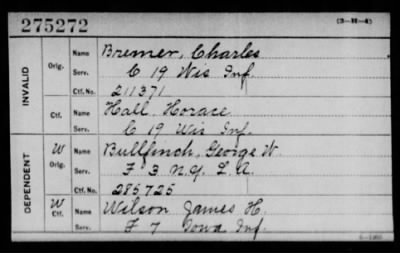 275272 (3-H-4)
INVALID
Orig. Name Bremer, Charles
Serv. C 19 Wis Inf.
Ctf. No. 211371
Ctf. Name Hall, Horace
Serv. C 19 Wis Inf.
DEPENDENT
W Orig. Name Bullfinch, George W.
Serv. F 3 N.Y. L.A.
Ctf. No. 285725
W Ctf. Name Wilson James H.
Serv. F 7 Iowa Inf.